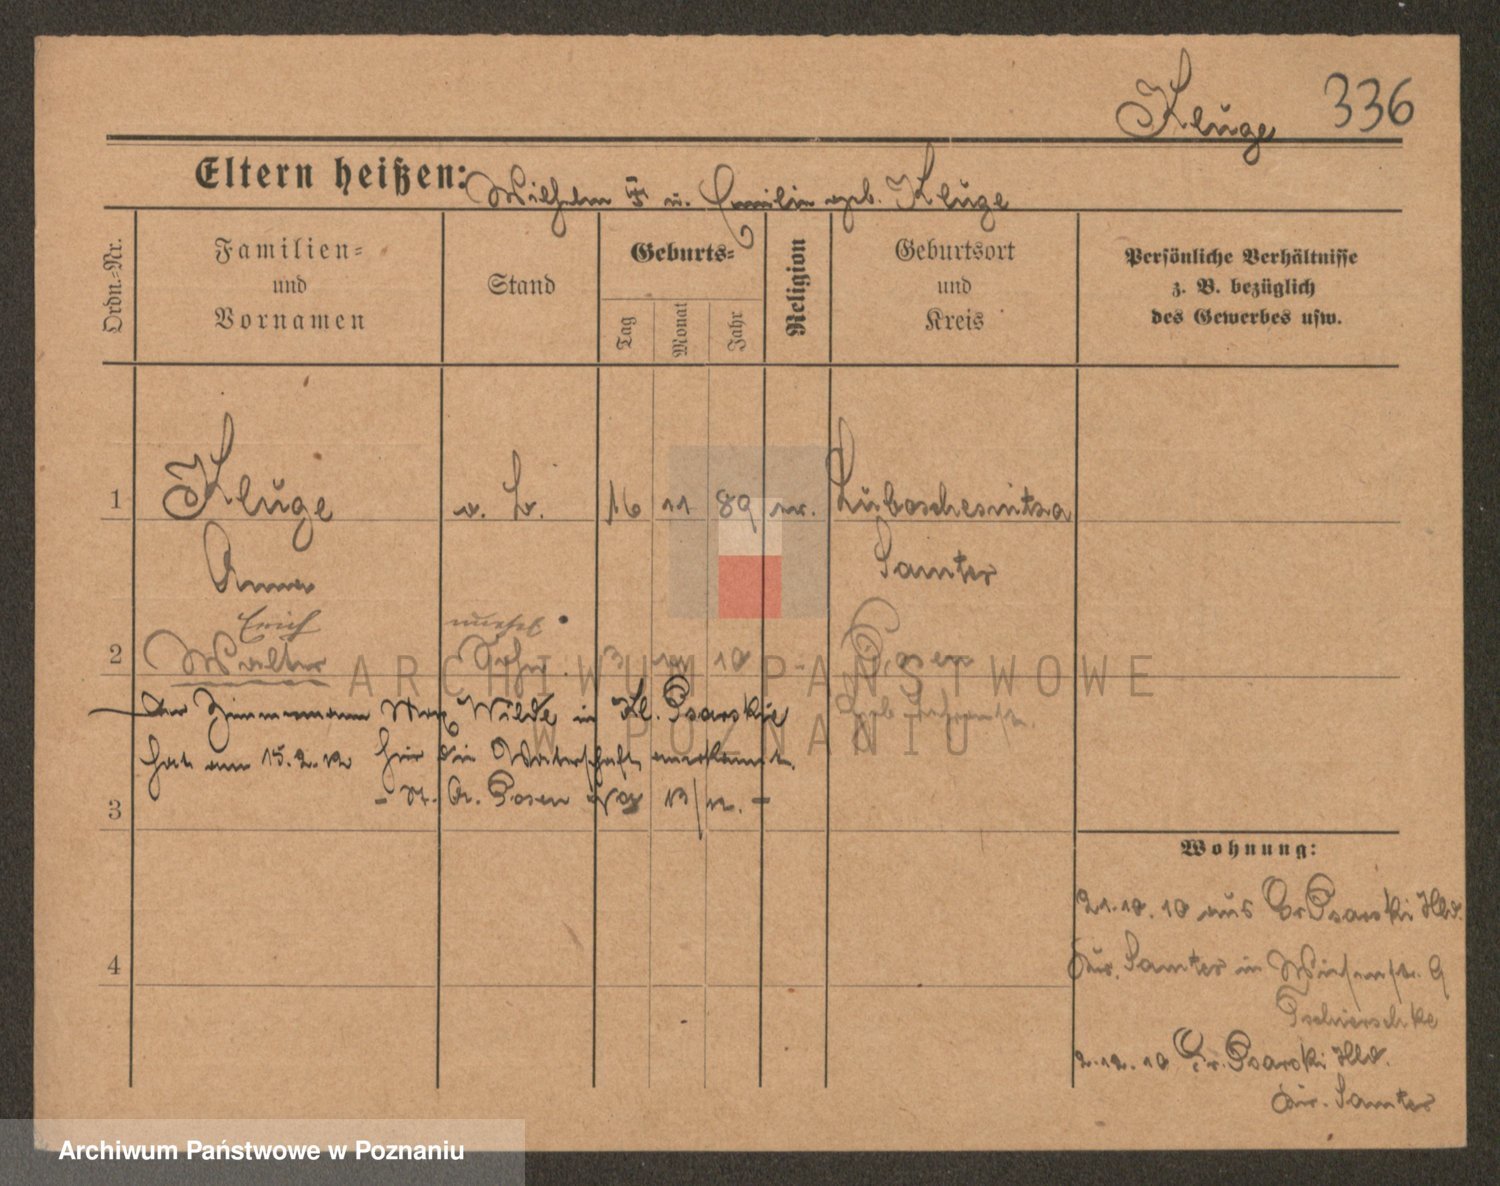 Kluge 336
Eltern heißen: Wilhelm † u. Emilie geb. Kluge
Ordn.-Nr.
Familien-
und
Vornamen
Stand
Geburts-
Tag
Monat
Jahr
Religion
Geburtsort
und
Kreis
Persönliche Verhältnisse
z. B. bezüglich
des Gewerbes usw.
1 Kluge o. B. 16 11 89 ev. Luboschesnitza
Anna Samter
Erich unehel.
2 Walter Sohn 3 10 Posen
Der Zimmermann Max Wilde in Kl. Psarskie
hat am 15.2.12 hier die Vaterschaft anerkannt.
- St. A. Posen 13/12. -
3
Wohnung:
21.10.10 aus Gr Psarski Hld.
Kr. Samter in Wiesenstr. 9
Tschierschke
4
2.12.10 Gr. Psarski Hld.
Kr. Samter
ARCHIWUM PAŃSTWOWE
W POZNANIU
Archiwum Państwowe w Poznaniu